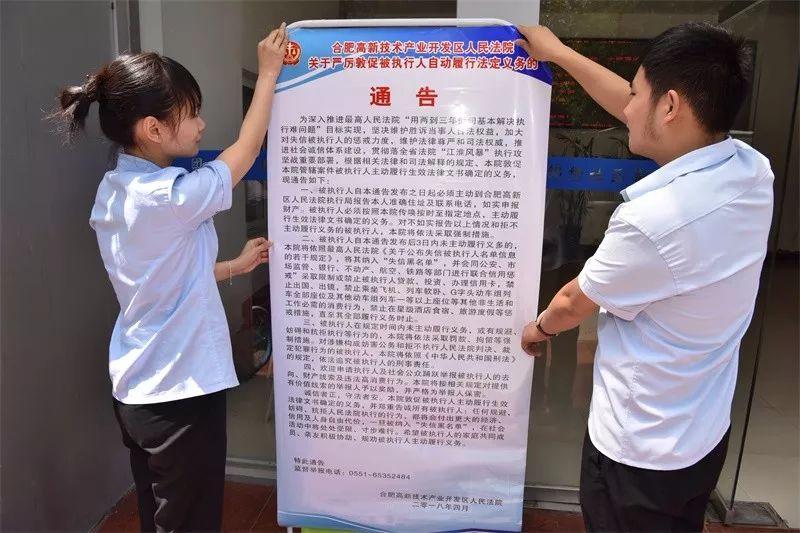 合肥高新技术产业开发区人民法院
关于严厉敦促被执行人自动履行法定义务的
通告
为深入推进最高人民法院“用两到三年时间基本解决执
行难问题”目标实现，坚决维护胜诉当事人合法权益，加大
对失信被执行人的惩戒力度，维护法律尊严和司法权威，推
进社会诚信体系建设，贯彻落实全省法院“江淮风暴”执行攻
坚战重要部署，根据相关法律和司法解释的规定，本院敦促
本院管辖案件被执行人主动履行生效法律文书确定的义务。
现通告如下：
一、被执行人自本通告发布之日起必须主动到合肥高新
区人民法院执行局报告本人准确住址及联系电话，如实申报
财产。被执行人必须按照本院传唤按时至指定地点，主动履
行生效法律文书确定的义务。对不如实报告以上情况和拒不
履行义务的被执行人，本院将依法采取强制措施。
二、被执行人自本通告发布后3日内未主动履行义务的，
本院将依照最高人民法院《关于公布失信被执行人名单信息
的若干规定》，将其纳入“失信黑名单”，并会同公安、市
场监管、银行、不动产、航空、铁路等部门进行联合信用惩
戒”采取限制或禁止被执行人贷款、投资、办理信用卡，禁
止出国、出境，禁止乘坐飞机、列车软卧、G字头动车组列
车全部座位及其他动车组列车一等以上座位等其他非生活和
工作必需的消费行为，禁止在星级酒店食宿、旅游度假等惩
戒措施，直至其全部履行义务时止。
三、被执行人在规定时间内未主动履行义务，或有规避、
妨碍和抗拒执行等行为的，本院将依法采取罚款、拘留等强
制措施。对涉嫌构成妨害公务和拒不执行人民法院判决、裁
定犯罪行为的被执行人，本院将依照《中华人民共和国刑法》
的规定，依法追究被执行人的刑事责任。
四、欢迎申请执行人及社会公众踊跃举报被执行人的去
向、财产线索及违法高消费行为。本院将按相关规定对提供
有价值线索的举报人予以奖励，并严格为举报人保密。
诚信者正，守法者安。本院敦促被执行人主动履行生效
法律文书确定的义务，并郑重告诫所有被执行人：任何规避、
妨碍、抗拒人民法院执行的行为，都将会付出更大的经济、
信用及人身自由代价，一旦被纳入“失信黑名单”，在社会
活动中将处处受限、寸步难行。希望被执行人的家庭共同成
员、亲友积极协助、规劝被执行人主动履行义务。
特此通告
监督举报电话：0551-65352484
合肥高新技术产业开发区人民法院
二零一八年四月